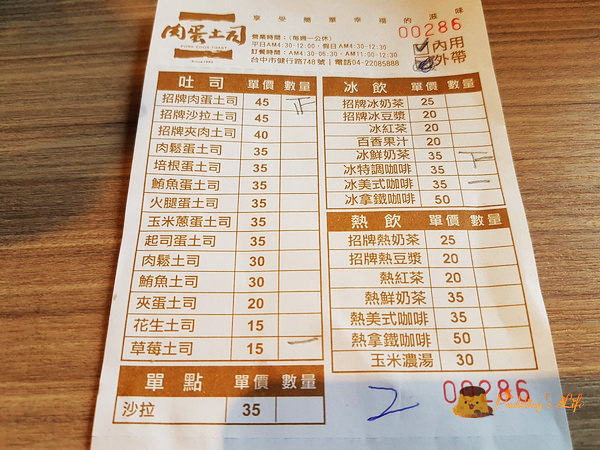 享受簡單幸福的滋味
肉蛋土司
PORK EGGS TOAST
營業時間：(每週一公休)
平日AM4:30-12:00，假日AM4:30-12:30
訂餐時間：AM4:30-06:30，AM11:00-12:30
台中市健行路748號｜電話04-22085888
00286
內用
外帶
吐司 單價 數量
招牌肉蛋土司 45 下
招牌沙拉土司 45
招牌夾肉土司 40
肉鬆蛋土司 35
培根蛋土司 35
鮪魚蛋土司 35
火腿蛋土司 35
玉米蔥蛋土司 35
起司蛋土司 35
肉鬆土司 30
鮪魚土司 30
夾蛋土司 20
花生土司 15
草莓土司 15 一
單點 單價 數量
沙拉 35
冰飲 單價 數量
招牌冰奶茶 25
招牌冰豆漿 20
冰紅茶 20
百香果汁 20
冰鮮奶茶 35 下
冰特調咖啡 35
冰美式咖啡 35 一
冰拿鐵咖啡 50
熱飲 單價 數量
招牌熱奶茶 25
招牌熱豆漿 20
熱紅茶 20
熱鮮奶茶 35
熱美式咖啡 35
熱拿鐵咖啡 50
玉米濃湯 30
2
00286
Pudding's Life